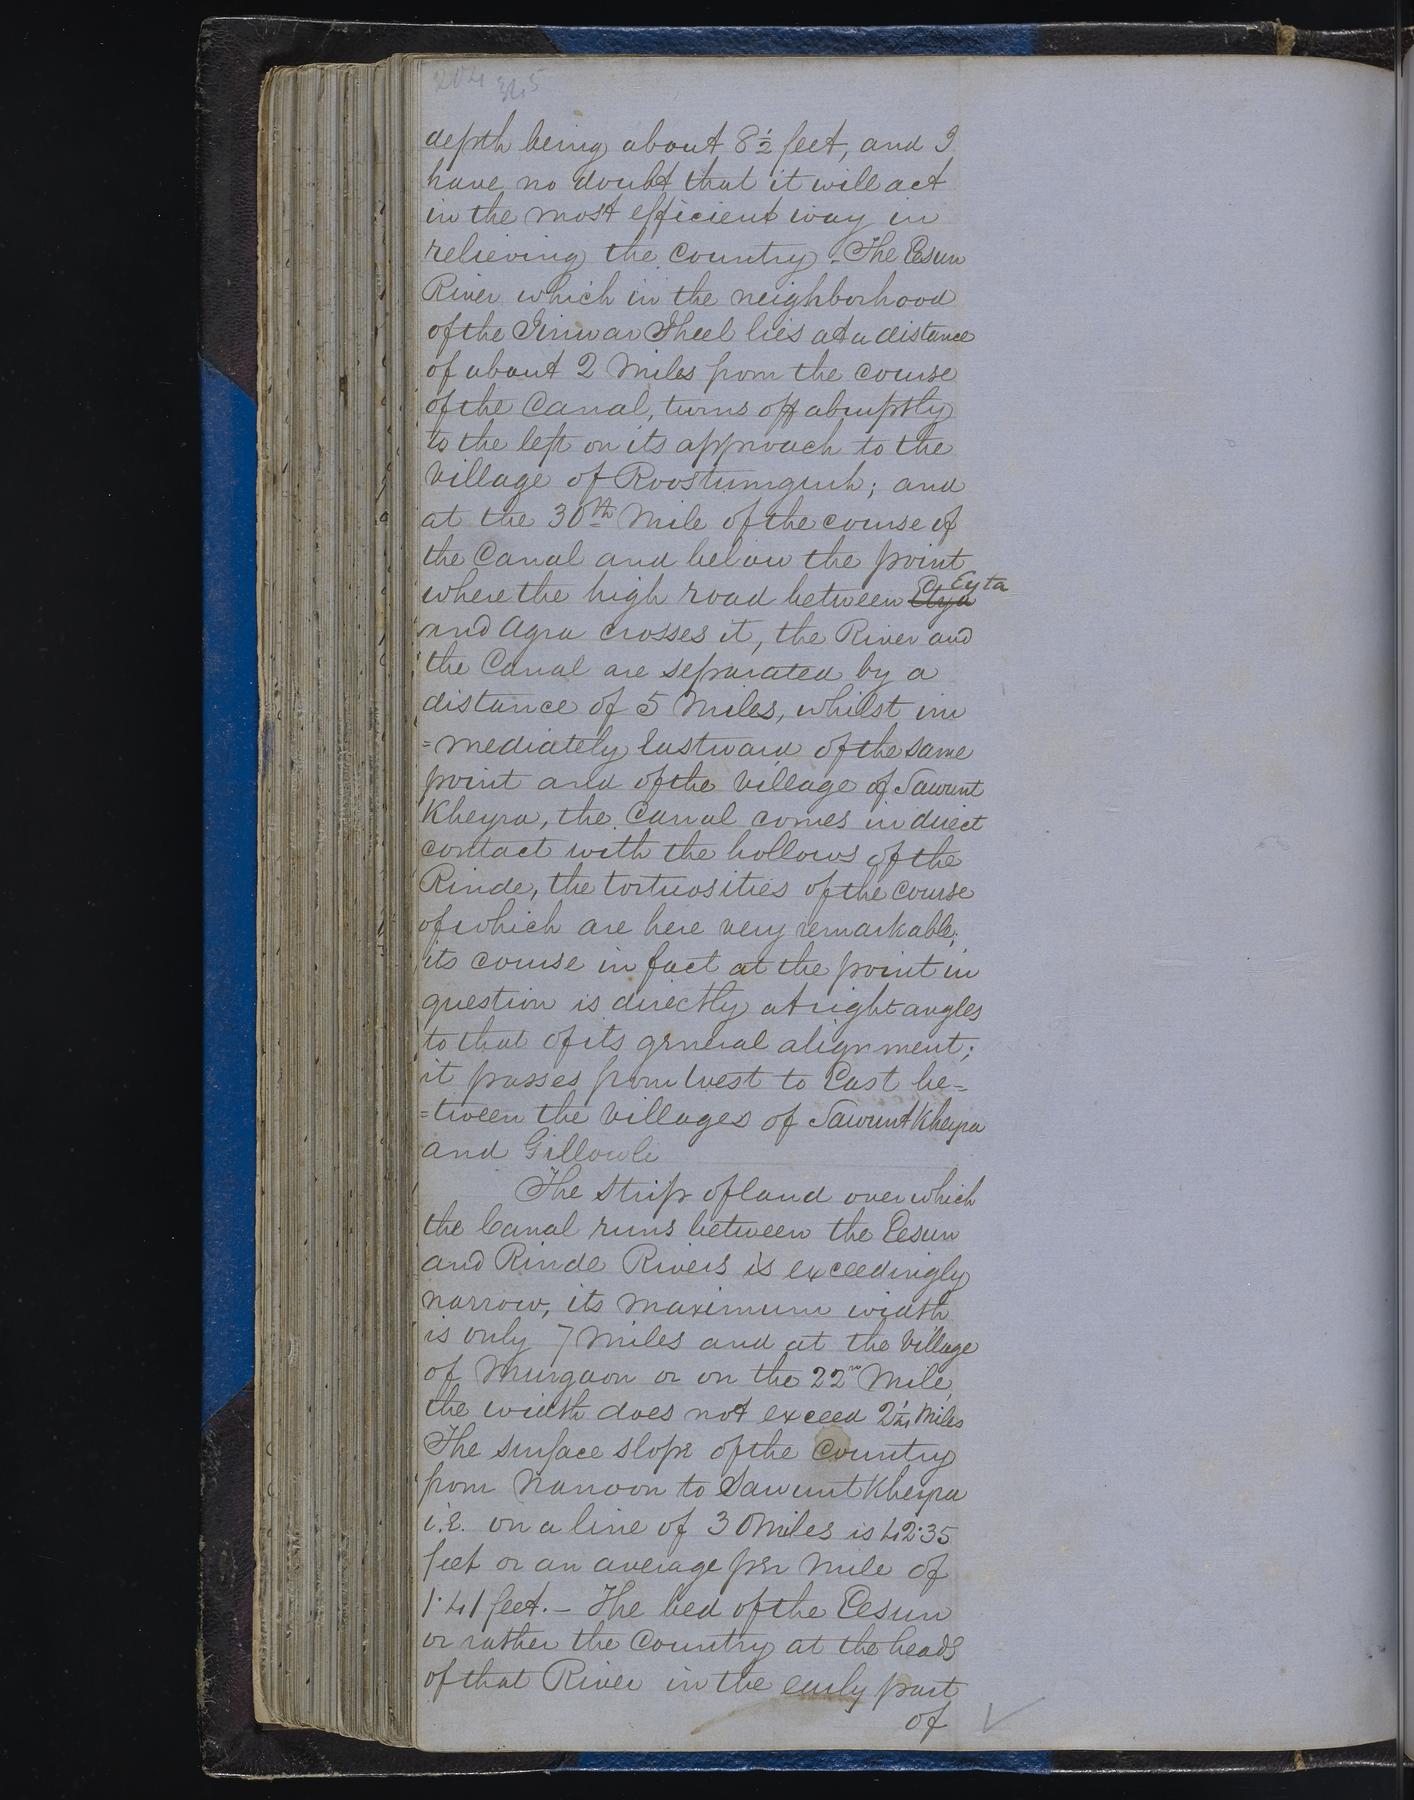 204 345
depth being about 8½ feet, and I
have no doubt that it will act
in the most efficient way in
relieving the country. The Eesun
River which in the neighborhood
of the Jheel lies at a distance
of about 2 Miles from the course
of the Canal, turns off abruptly
to the left on its approach to the
village of Roostumgurh; and
at the 30th Mile of the course of
the Canal and below the point
where the high road between Etya Eyta
and Agra crosses it, the River and
the Canal are separated by a
distance of 5 Miles, whilst im
=mediately Eastward of the same
point and of the village of Sawunt
Kheyra, the Canal comes in direct
contact with the hollows of the
Rinde, the tortuosities of the course
of which are here very remarkable;
its course in fact at the point in
question is directly at right angles
to that of its general alignment;
it passes from West to East be=
=tween the villages of Sawunt Kheyra
and Gillowli
The strip of land over which
the Canal runs between the Eesun
and Rinde Rivers is exceedingly
narrow, its maximum width
is only 7 Miles and at the Village
of Murgaon or on the 22n Mile,
the width does not exceed 2¼ Miles
The surface slope of the Country
from Nanoon to Sawunt Kheyra
i.e. on a line of 30 Miles is 42·35
feet or an average per Mile of
1·41 feet. – The bed of the Eesun
or rather the Country at the heads
of that River in the early part
of